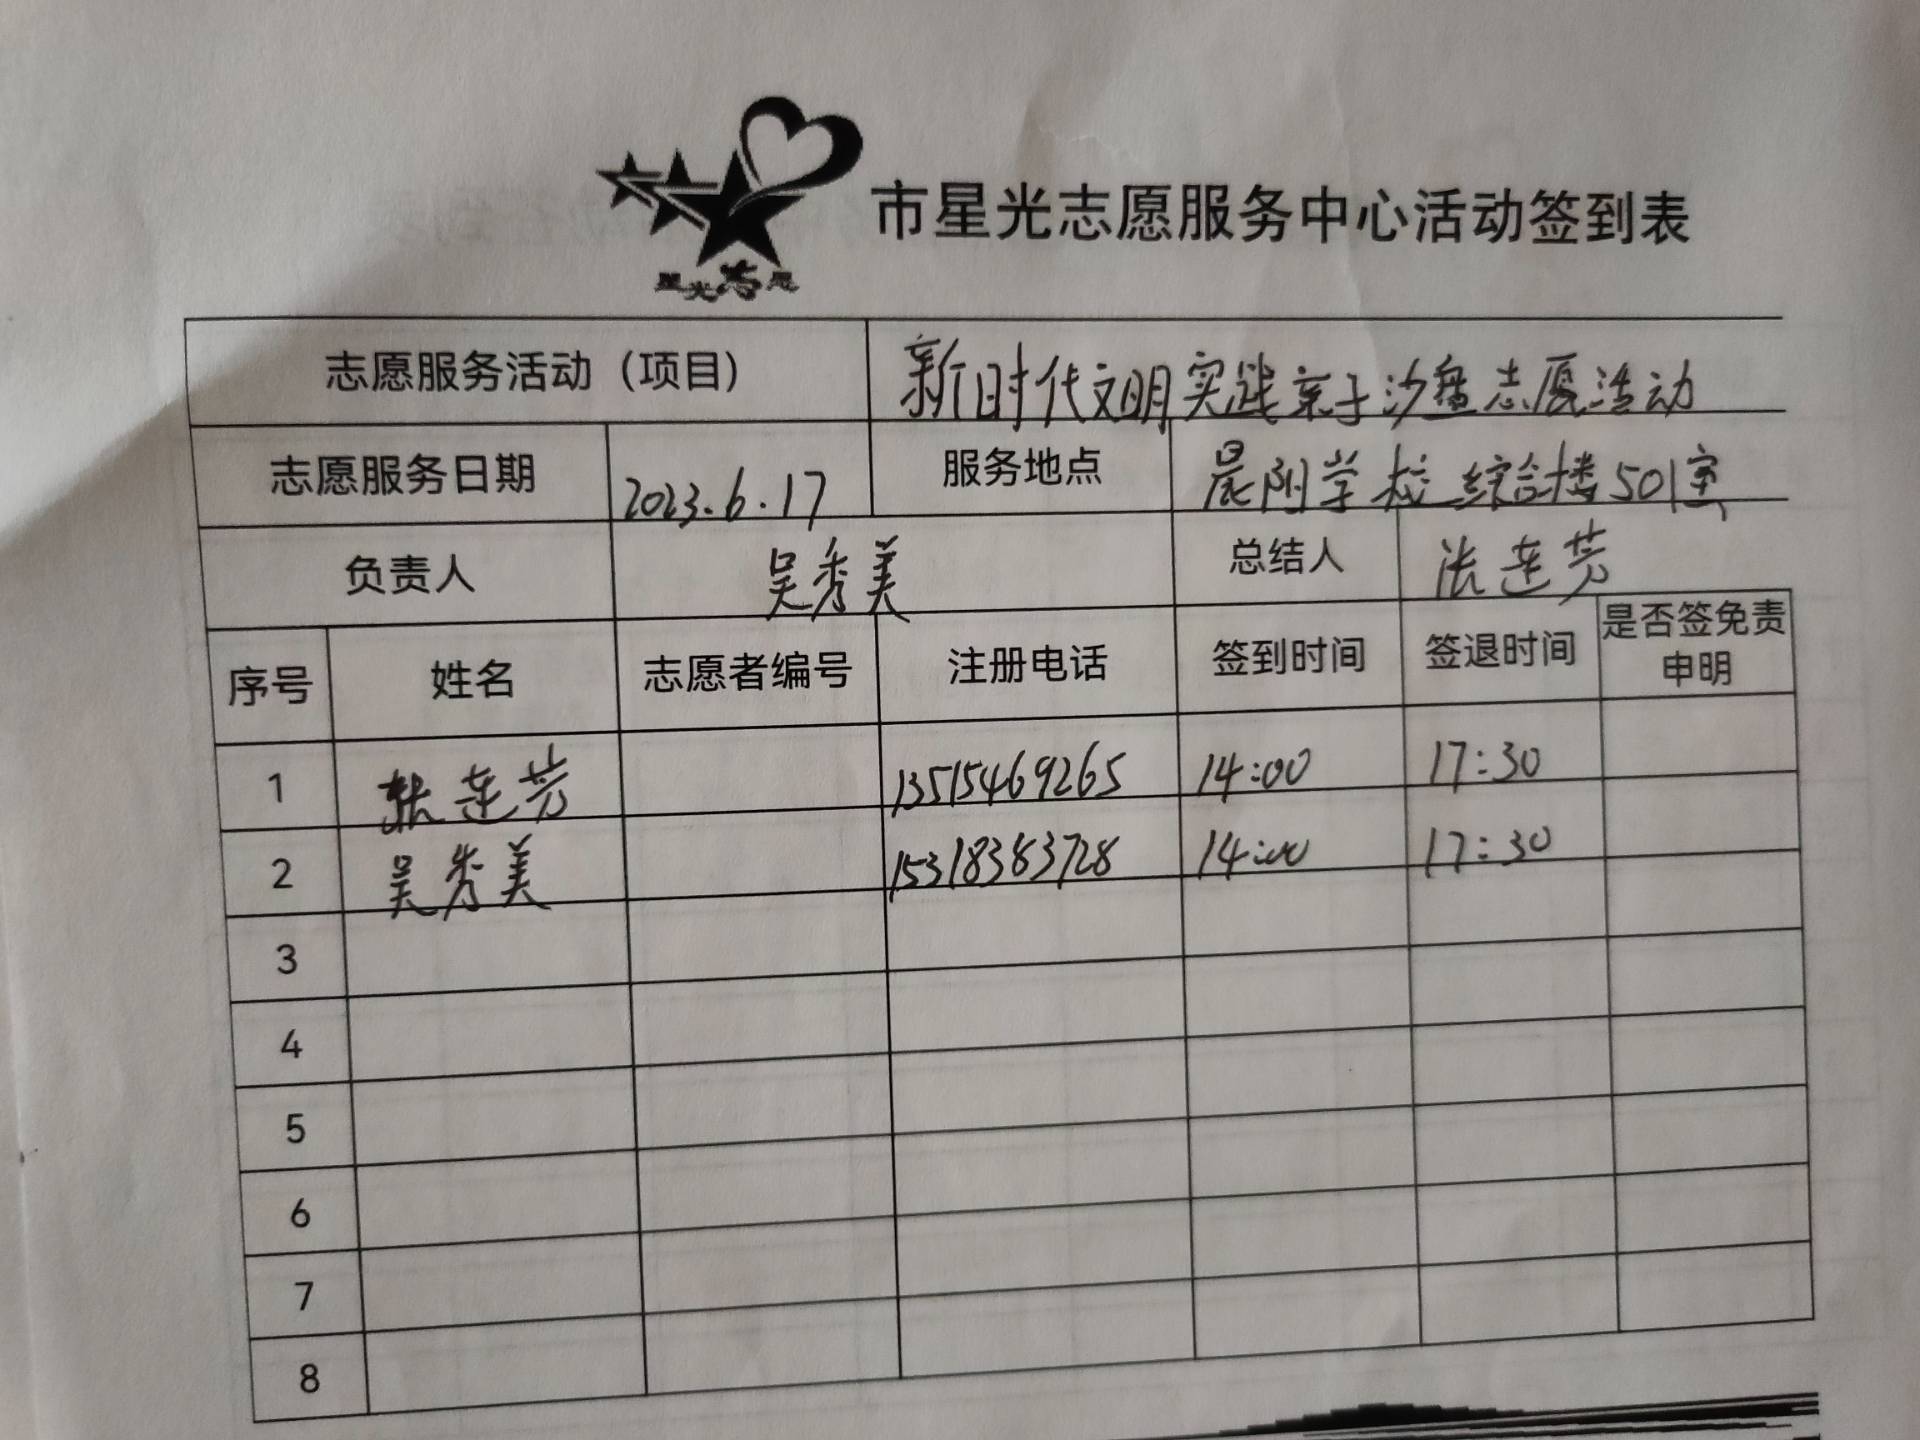 市星光志愿服务中心活动签到表
星光志愿
志愿服务活动（项目） 新时代文明实践亲子沙盘志愿活动
志愿服务日期 2023.6.17 服务地点 晨阳学校综合楼501室
负责人 吴秀美 总结人 张莲芳
序号 姓名 志愿者编号 注册电话 签到时间 签退时间 是否签免责
申明
1 张莲芳 13515469265 14:00 17:30
2 吴秀美 15318383728 14:00 17:30
3
4
5
6
7
8